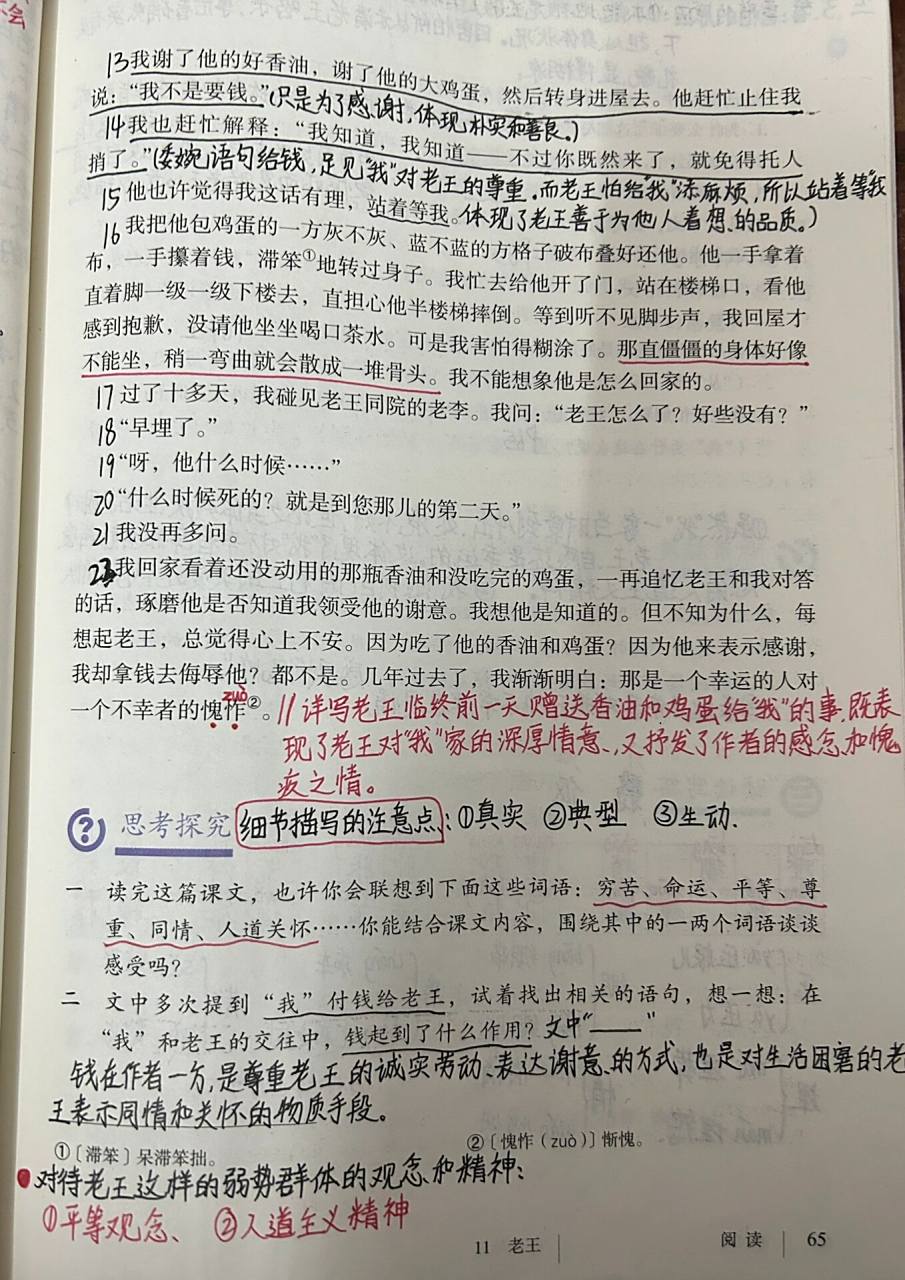 会
13我谢了他的好香油，谢了他的大鸡蛋，然后转身进屋去。他赶忙止住我
说：“我不是要钱。”(只是为了感谢，体现朴实和善良。)
14我也赶忙解释：“我知道，我知道——不过你既然来了，就免得托人
捎了。”(委婉语句给钱，足见“我”对老王的尊重，而老王怕给“我”添麻烦，所以站着等我
15他也许觉得我这话有理，站着等我。体现了老王善于为他人着想的品质。)
16我把他包鸡蛋的一方灰不灰、蓝不蓝的方格子破布叠好还他。他一手拿着
布，一手攥着钱，滞笨①地转过身子。我忙去给他开了门，站在楼梯口，看他
直着脚一级一级下楼去，直担心他半楼梯摔倒。等到听不见脚步声，我回屋才
感到抱歉，没请他坐坐喝口茶水。可是我害怕得糊涂了。那直僵僵的身体好像
不能坐，稍一弯曲就会散成一堆骨头。我不能想象他是怎么回家的。
17过了十多天，我碰见老王同院的老李。我问：“老王怎么了？好些没有？”
18“早埋了。”
19“呀，他什么时候……”
20“什么时候死的？就是到您那儿的第二天。”
21我没再多问。
22我回家看着还没动用的那瓶香油和没吃完的鸡蛋，一再追忆老王和我对答
的话，琢磨他是否知道我领受他的谢意。我想他是知道的。但不知为什么，每
想起老王，总觉得心上不安。因为吃了他的香油和鸡蛋？因为他来表示感谢，
我却拿钱去侮辱他？都不是。几年过去了，我渐渐明白：那是一个幸运的人对
zuò
一个不幸者的愧怍②。//详写老王临终前一天赠送香油和鸡蛋给“我”的事，既表
现了老王对“我”家的深厚情意，又抒发了作者的感念和愧
疚之情。
思考探究 细节描写的注意点：①真实 ②典型 ③生动.
一 读完这篇课文，也许你会联想到下面这些词语：穷苦、命运、平等、尊
重、同情、人道关怀……你能结合课文内容，围绕其中的一两个词语谈谈
感受吗？
二 文中多次提到“我”付钱给老王，试着找出相关的语句，想一想：在
“我”和老王的交往中，钱起到了什么作用？文中“——”
钱在作者一方，是尊重老王的诚实劳动、表达谢意的方式，也是对生活困窘的老
王表示同情和关怀的物质手段。
①〔滞笨〕呆滞笨拙。 ②〔愧怍（zuò）〕惭愧。
对待老王这样的弱势群体的观念和精神：
①平等观念、 ②人道主义精神
11 老王 阅读 65